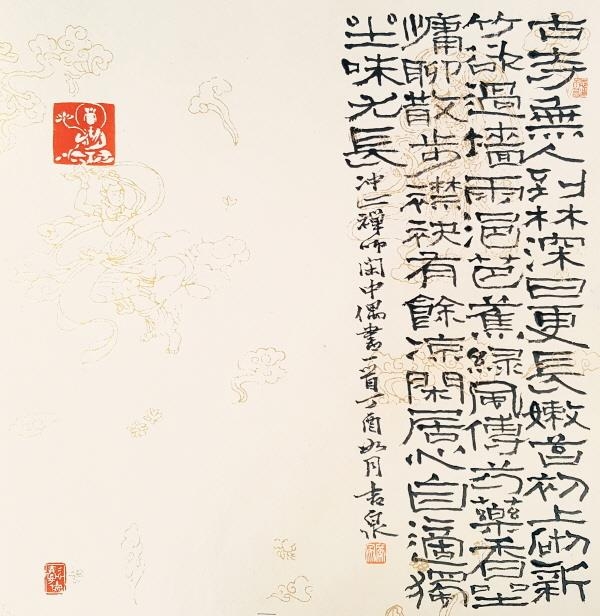 古寺無人到林深日更長嫩苔初上砌新
竹欲過墻雨浥芭蕉綠風傳芍藥香坐
慵聊散步襟袂有餘涼閑居心自適獨
坐味尤長
禪師閑中偶書一首丁酉如月吉泉